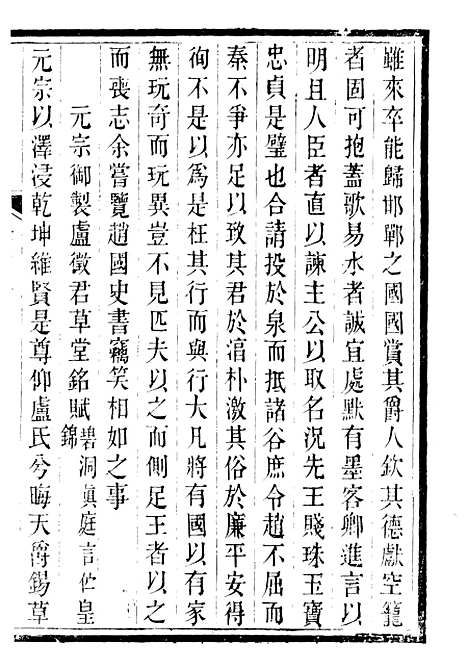 雖來卒能歸邯鄲之國國賞其爵人欽其德獻空籠
者固可抱蓋歌易水者誠宜處默有墨客卿進言以
明且人臣者直以諫主公以取名況先王賤珠玉寶
忠貞是璧也合請投於泉而抵諸谷庶令趙不屈而
秦不爭亦足以致其君於㳷朴激其俗於廉平安得
徇不是以為是枉其行而與行大凡將有國以有家
無玩奇而玩異豈不見匹夫以之而側足王者以之
而喪志余嘗覽趙國史書竊笑相如之事
元宗御製盧徵君草堂銘賦碧洞真庭言世皇錦
元宗以澤浸乾坤維賢是尊仰盧氏兮晦天爵錫草